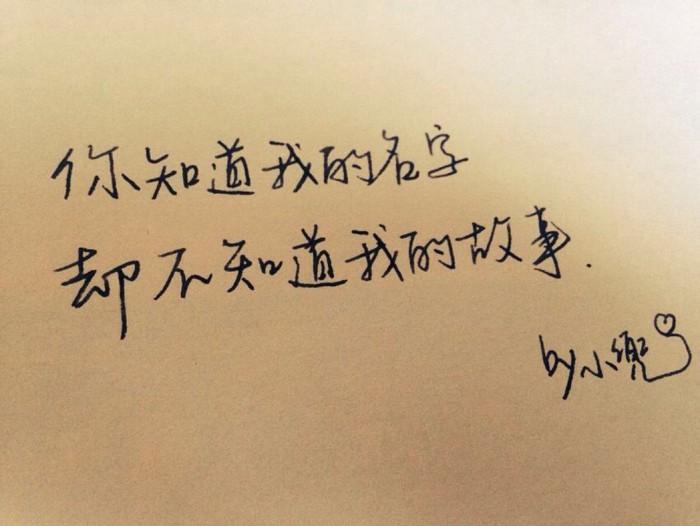 你知道我的名字
却不知道我的故事.
by小兜